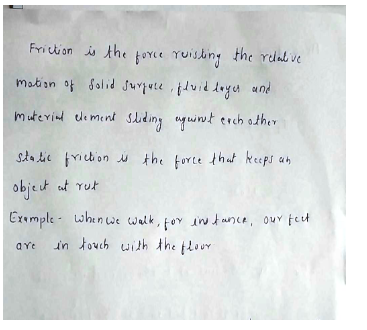 Friction is the force resisting the relative
motion of solid surface, fluid layers and
material element sliding against each other
Static friction is the force that keeps an
object at rest
Example - when we walk, for instance, our feet
are in touch with the floor